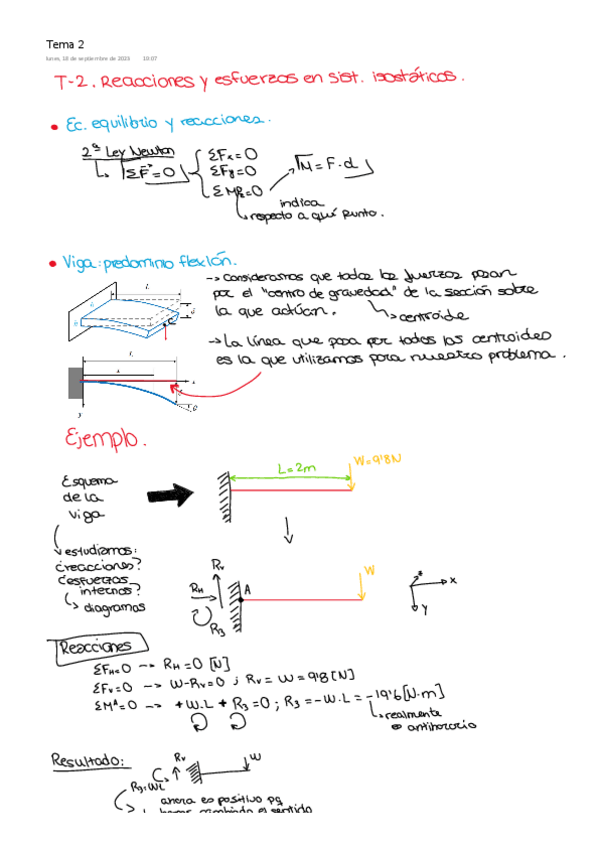 Tema 2
lunes, 18 de septiembre de 2023 19:07
T-2. Reacciones y esfuerzos en sist. isostáticos.
• Ec. equilibrio y reacciones.
2ª Ley Newton
ΣF=0
ΣFx=0
ΣFy=0
ΣMP=0
M=F·d
indica
respecto a qué punto.
• Viga: predominio flexión.
-> Consideramos que todas las fuerzas pasan
por el "centro de gravedad" de la sección sobre
la que actúan.
centroide
-> La línea que pasa por todos los centroides
es la que utilizamos para nuestro problema.
L
L
x
y
Ejemplo.
Esquema
de la
viga
L=2m
W=9'8N
estudiamos:
¿reacciones?
¿esfuerzos
internos?
diagramas
RV
RH
R3
A
W
z
x
y
Reacciones
ΣFH=0 -> RH=0 [N]
ΣFV=0 -> W-RV=0 ; RV=W=9'8[N]
ΣMA=0 -> +W.L + R3=0 ; R3=-W.L=-19'6[N·m]
realmente
es antihorario
Resultado:
RV
W
R3=WL
ahora es positivo pq
hemos cambiado el sentido